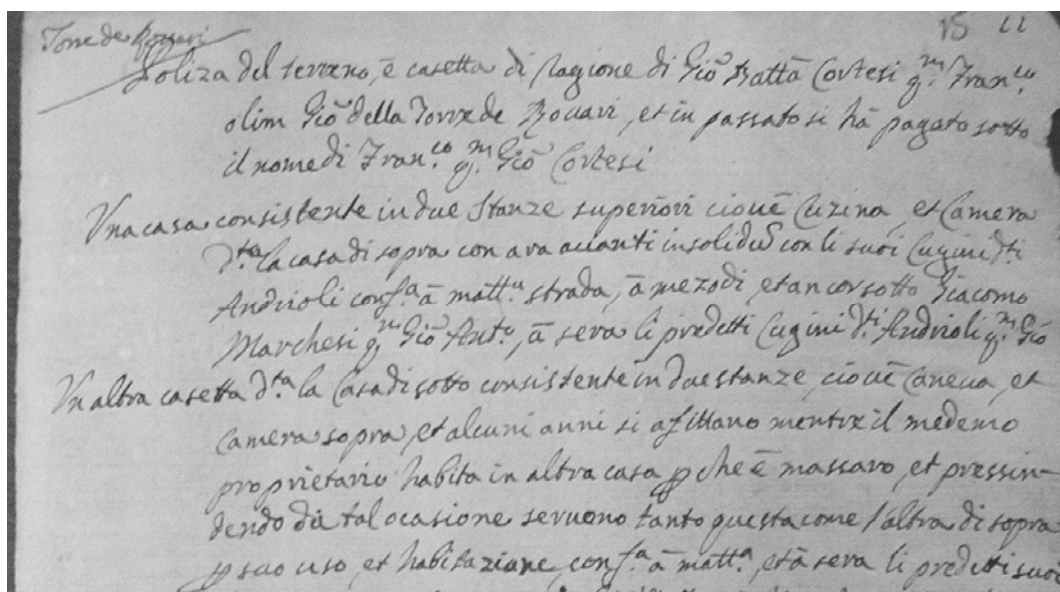 15 22
Torre de Rovari
Poliza del terreno, è casetta di ragione di Giõ Battã Cortesi q.m Fran.co
olim Giõ della Torre de Rovari, et in passato si hà pagato sotto
il nome di Fran.co q.m Giõ Cortesi
Una casa consistente in due stanze superiori ciouè Cuzina, et Camera
d.ta la casa di sopra con ara avanti insolidũ con li suoi Cugini d.ti
Andrioli conf.a à matt.a strada, à mezodi, et ancor sotto Giacomo
Marchesi q.m Giõ Ant.o, à sera li predetti Cugini d.ti Andrioli q.m Giõ
Un altra casetta d.ta la Casa di sotto consistente in due stanze, ciouè Caneva, et
camera sopra, et alcuni anni si afittano mentre il medemo
proprietario habita in altra casa p che è massaro, et pressin-
dendo da tal ocasione servono tanto questa come l'altra di sopra
p suo uso, et habitazione, conf.a à matt.a, et à sera li predetti suoi